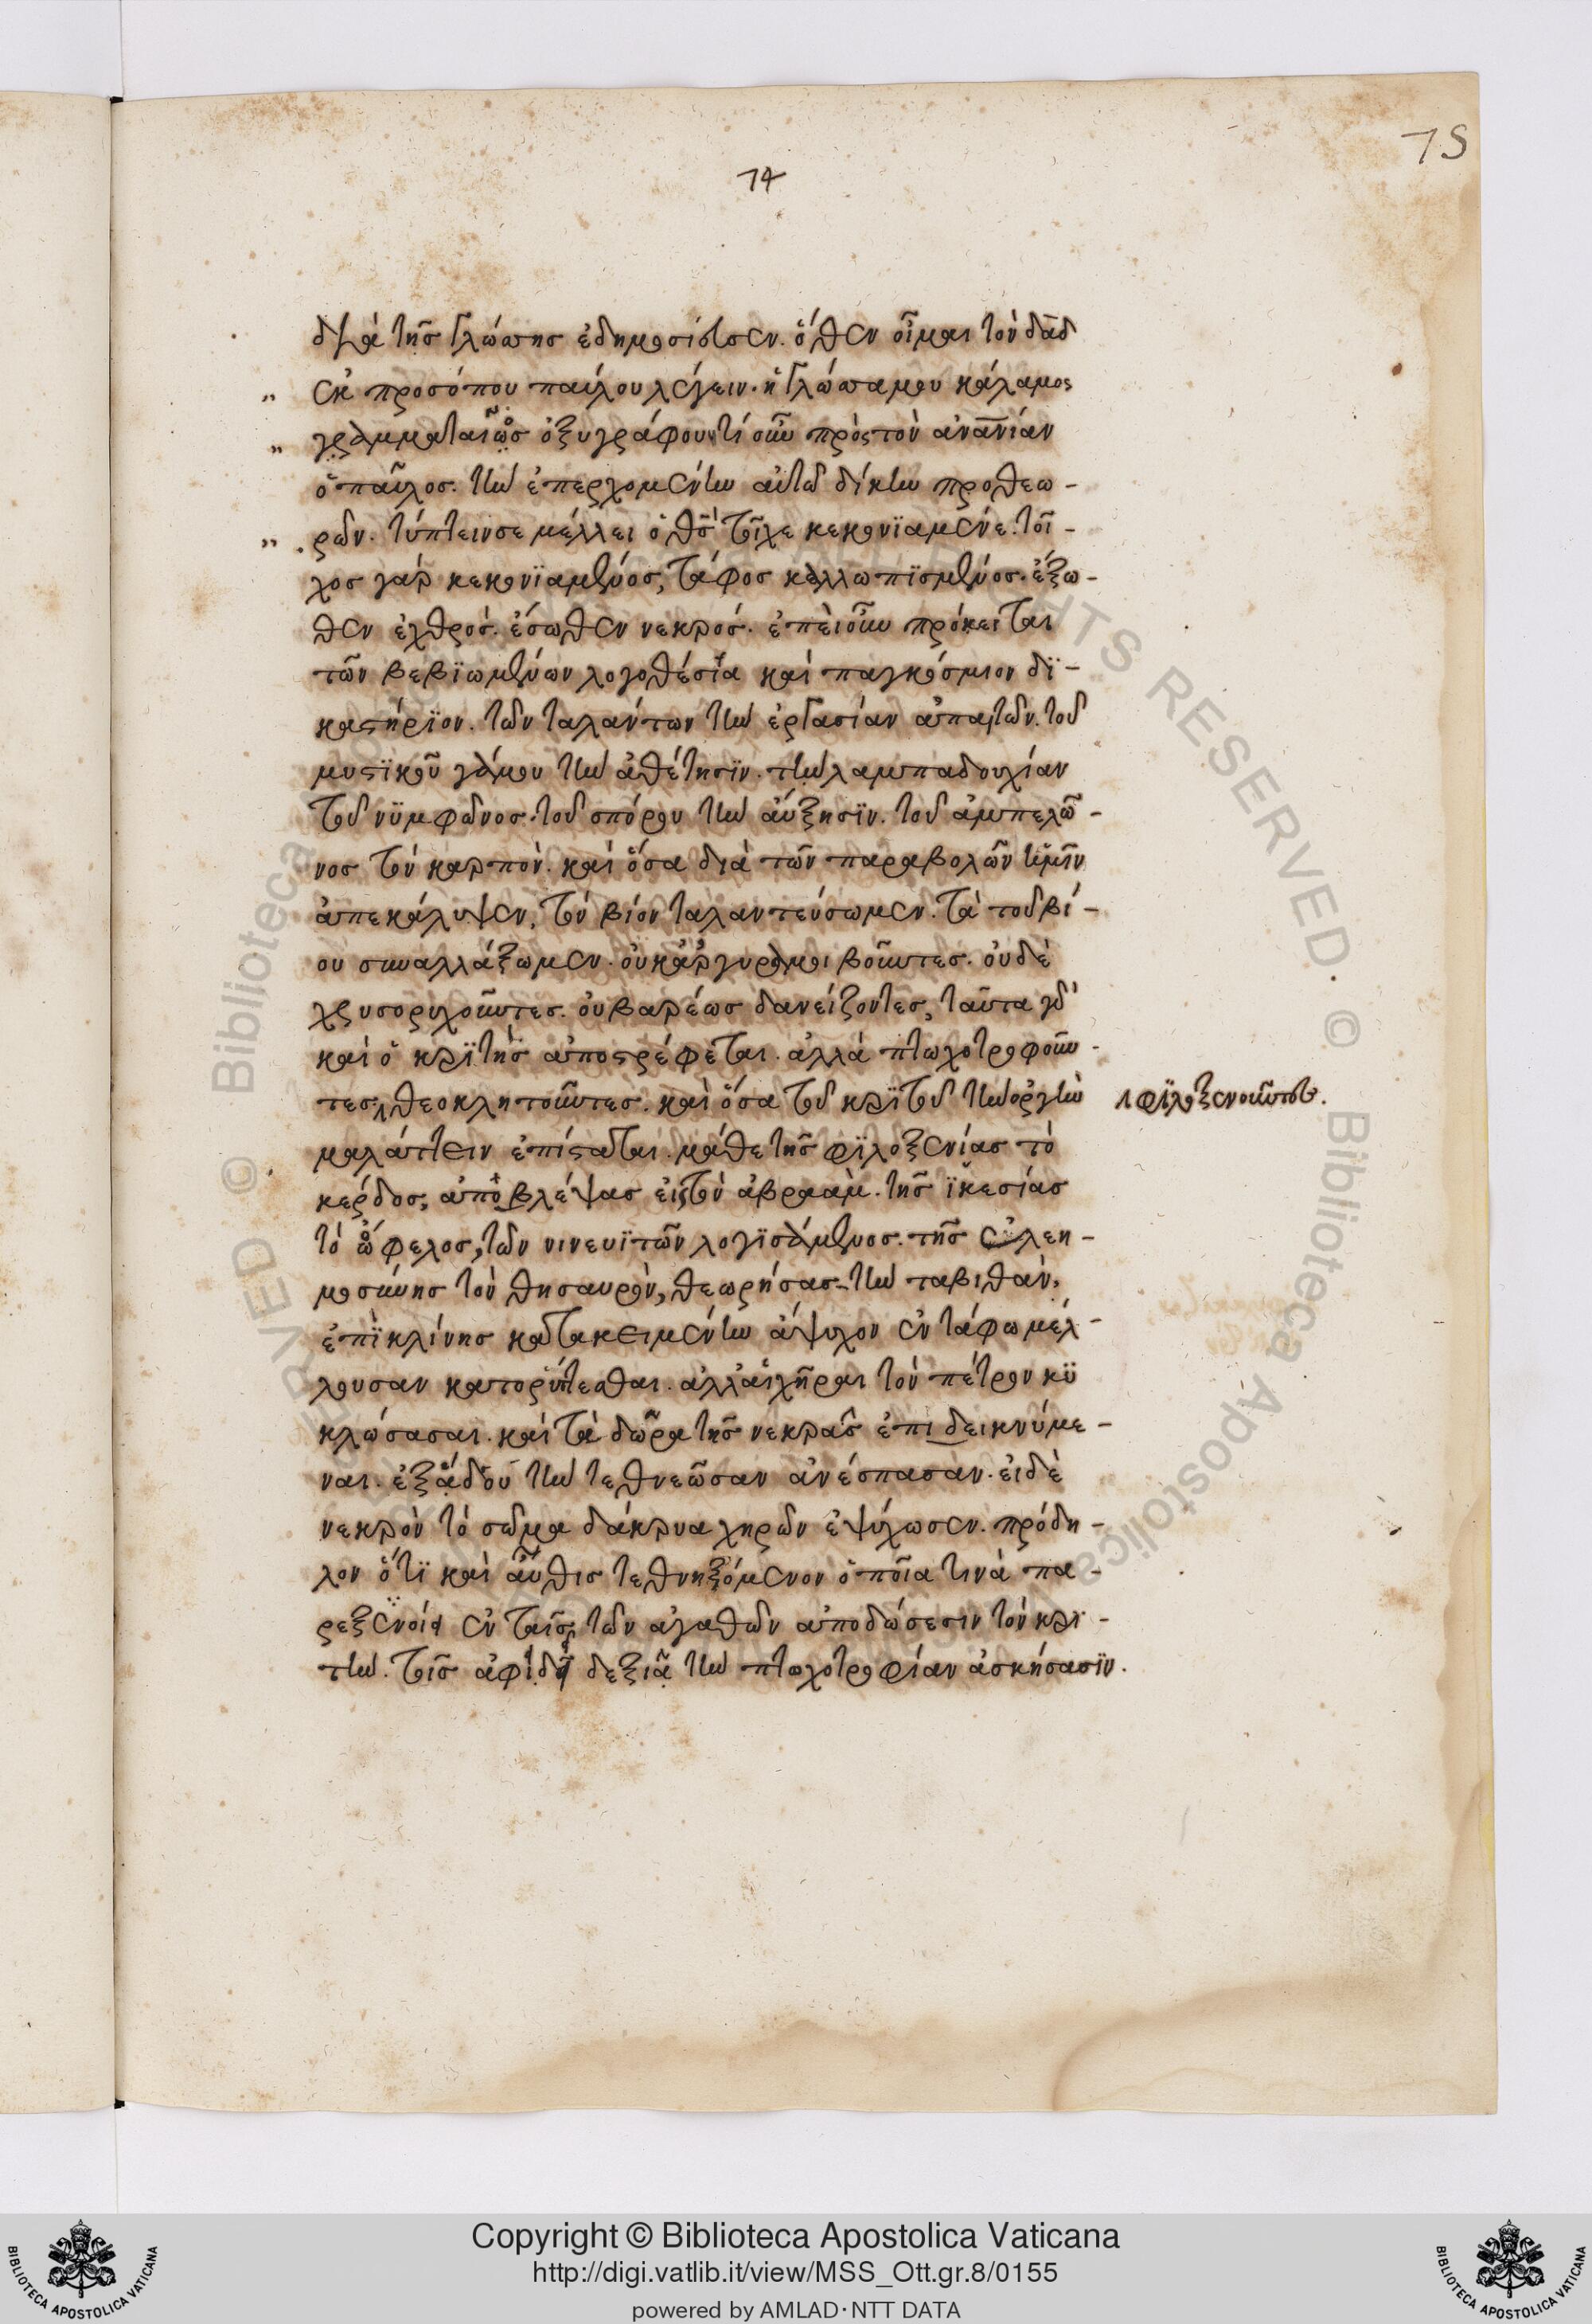 75
74
διὰ τῆς γλώσσης ἐδημοσίευσεν. ὅθεν οἶμαι τὸν δᾱδ
ἐκ προσόπου παύλου λέγειν. ἡ γλώσσα μου κάλαμος
γραμματαίως ὀξυγράφου. τί οὖν πρὸς τὸν ἀνανίαν
ὁ παῦλος. τὴν ἐπερχομένην αὐτῶ δίκην προθεω-
ρῶν. τύπτειν σε μέλλει ὁ θς̄ τοῖχε κεκονϊαμένε. τοῖ-
χος γὰρ κεκονϊαμένος, τάφος καλλωπϊσμένος. ἔξω-
θεν ἐχθρός. ἔσωθεν νεκρός. ἐπεὶ οὖν πρόκειται
τῶν βεβϊωμένων λογοθέσια καὶ παγκόσμιον δϊ-
καστήρϊον. τῶν ταλάντων τὴν ἐργασίαν ἀπαιτῶν. τοῦ
μυστϊκοῦ γάμου τὴν ἀθέτησϊν. τὴν λαμπαδουχίαν
τοῦ νϋμφῶνος. τοῦ σπόρου τὴν αὔξησϊν. τοῦ ἀμπελῶ-
νος τὸν καρπὸν. καὶ ὅσα διὰ τῶν παραβολῶν ἡμῖν
ἀπεκάλυψεν, τὸν βίον ταλαντεύσωμεν. τὰ τοῦ βί-
ου συναλλάξωμεν. οὐκ ἀργυραμοιβοῦντες. οὐδὲ
χρυσοριχοῦντες. οὐ βαρέως δανείζοντες, ταῦτα γὰρ
καὶ ὁ κρϊτὴς ἀποστρέφεται. ἀλλὰ πτωχοτροφοῦν-
τες, θεοκλητοῦντες. καὶ ὅσα τοῦ κρϊτοῦ τὴν ὀργὴν
φϊλοξενοῦντες.
μαλάττειν ἐπίσταται. μάθε τῆς φϊλοξενίας τὸ
κέρδος, ἀποβλέψας εἰς τὸν ἀβραάμ. τῆς ϊκεσίας
τὸ ὤφελος, τῶν νινευϊτῶν λογϊσάμενος. τῆς ἐλεη-
μοσύνης τὸν θησαυρὸν, θεωρήσας τὴν ταβιθὰν,
ἐπϊ κλίνης κατακειμένην ἄψυχον ἐν τάφω μέλ-
λουσαν κατορύττεσθαι. ἀλλ' αἱ χῆραι τὸν πέτρον κϋ
κλώσασαι. καὶ τὰ δῶρα τῆς νεκρᾶς ἐπιδεικνύμε-
ναι. ἐξ ἅδου τὴν τεθνεῶσαν ἀνέσπασαν. εἰ δὲ
νεκρὸν τὸ σῶμα δάκρυα χηρῶν ἐψύχωσεν. πρόδη-
λον ὅτϊ καὶ αὖθις τεθνηξόμενον ὁποῖα τινὰ πα-
ρεξενοία ἐν ταῖς τῶν ἀγαθῶν ἀποδώσεσιν τὸν κρϊ-
τὴν. τοῖς δεξιᾶ τὴν πτωχοτροφίαν ἀσκήσασϊν.
Copyright © Biblioteca Apostolica Vaticana
http://digi.vatlib.it/view/MSS_Ott.gr.8/0155
powered by AMLAD·NTT DATA